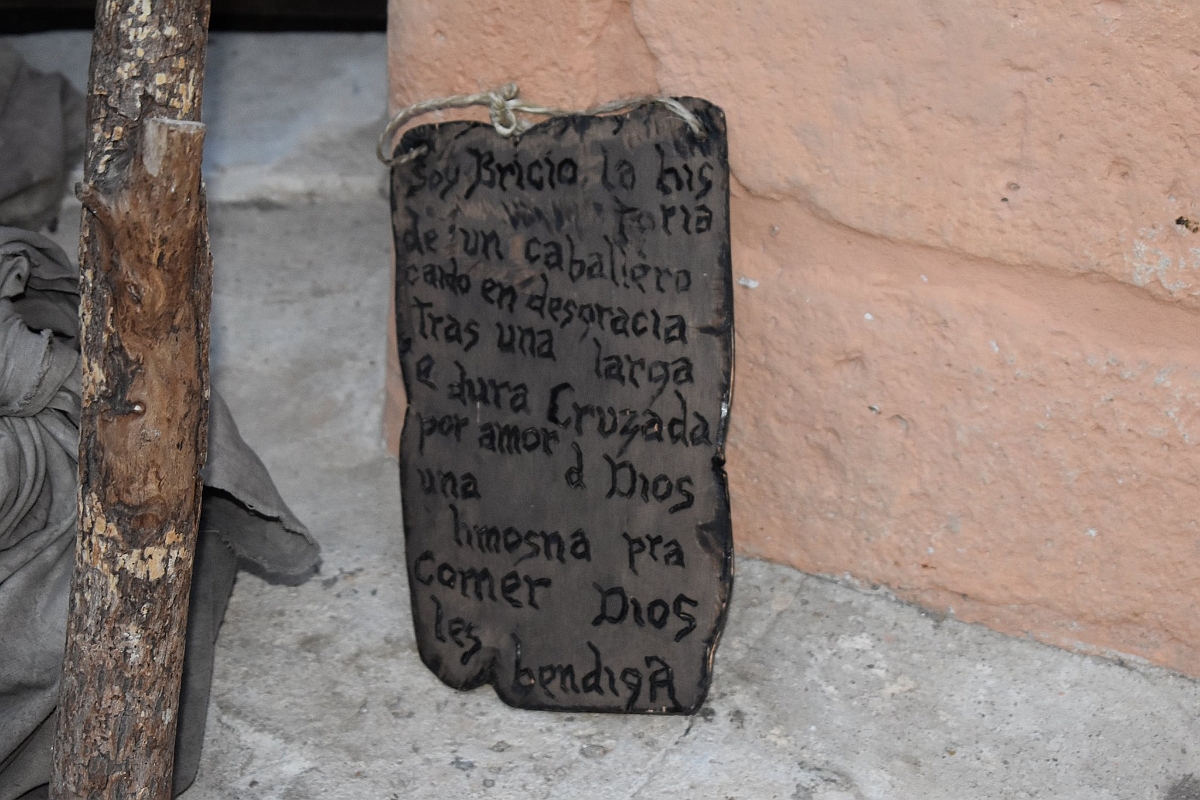 Soy Bricio la his
toria
de un caballero
caido en desgracia
tras una larga
e dura Cruzada
por amor d Dios
una
limosna pra
Comer Dios
les bendiga